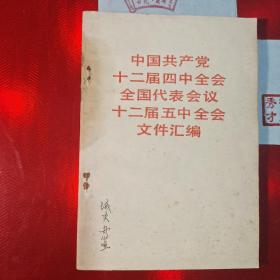 中国共产党
十二届四中全会
全国代表会议
十二届五中全会
文件汇编
秀才